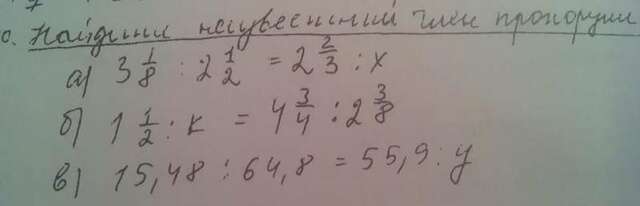 Найдите неизвестный член пропорции
а) 3 1/8 : 2 1/2 = 2 2/3 : x
б) 1 1/2 : к = 4 3/4 : 2 3/8
в) 15,48 : 64,8 = 55,9 : y